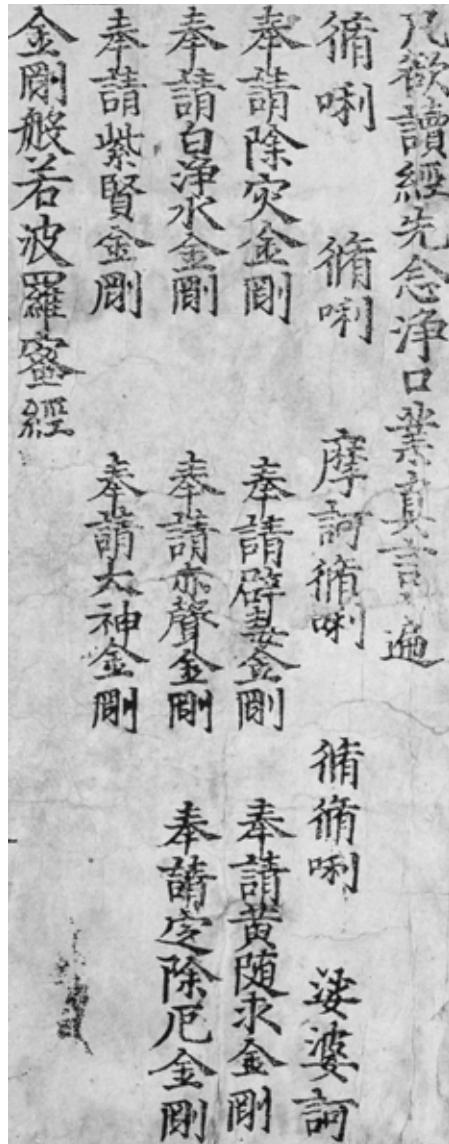 凡欲讀經先念浄口業真言一遍
脩唎 脩唎 摩訶脩唎 脩脩唎 娑婆訶
奉請除灾金剛 奉請辟毒金剛 奉請黄随求金剛
奉請白浄水金剛 奉請赤聲金剛 奉請定除厄金剛
奉請紫賢金剛 奉請大神金剛
金剛般若波羅蜜經